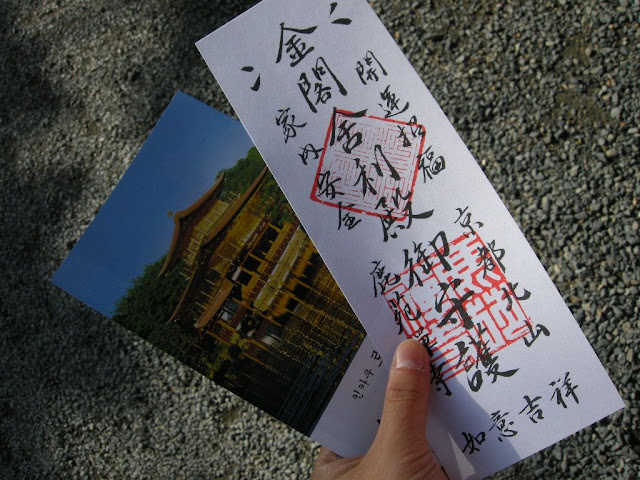 開運招福
京都北山
如意吉祥
金閣舎利殿御守護
家内安全
鹿苑禅寺
킨카쿠 로